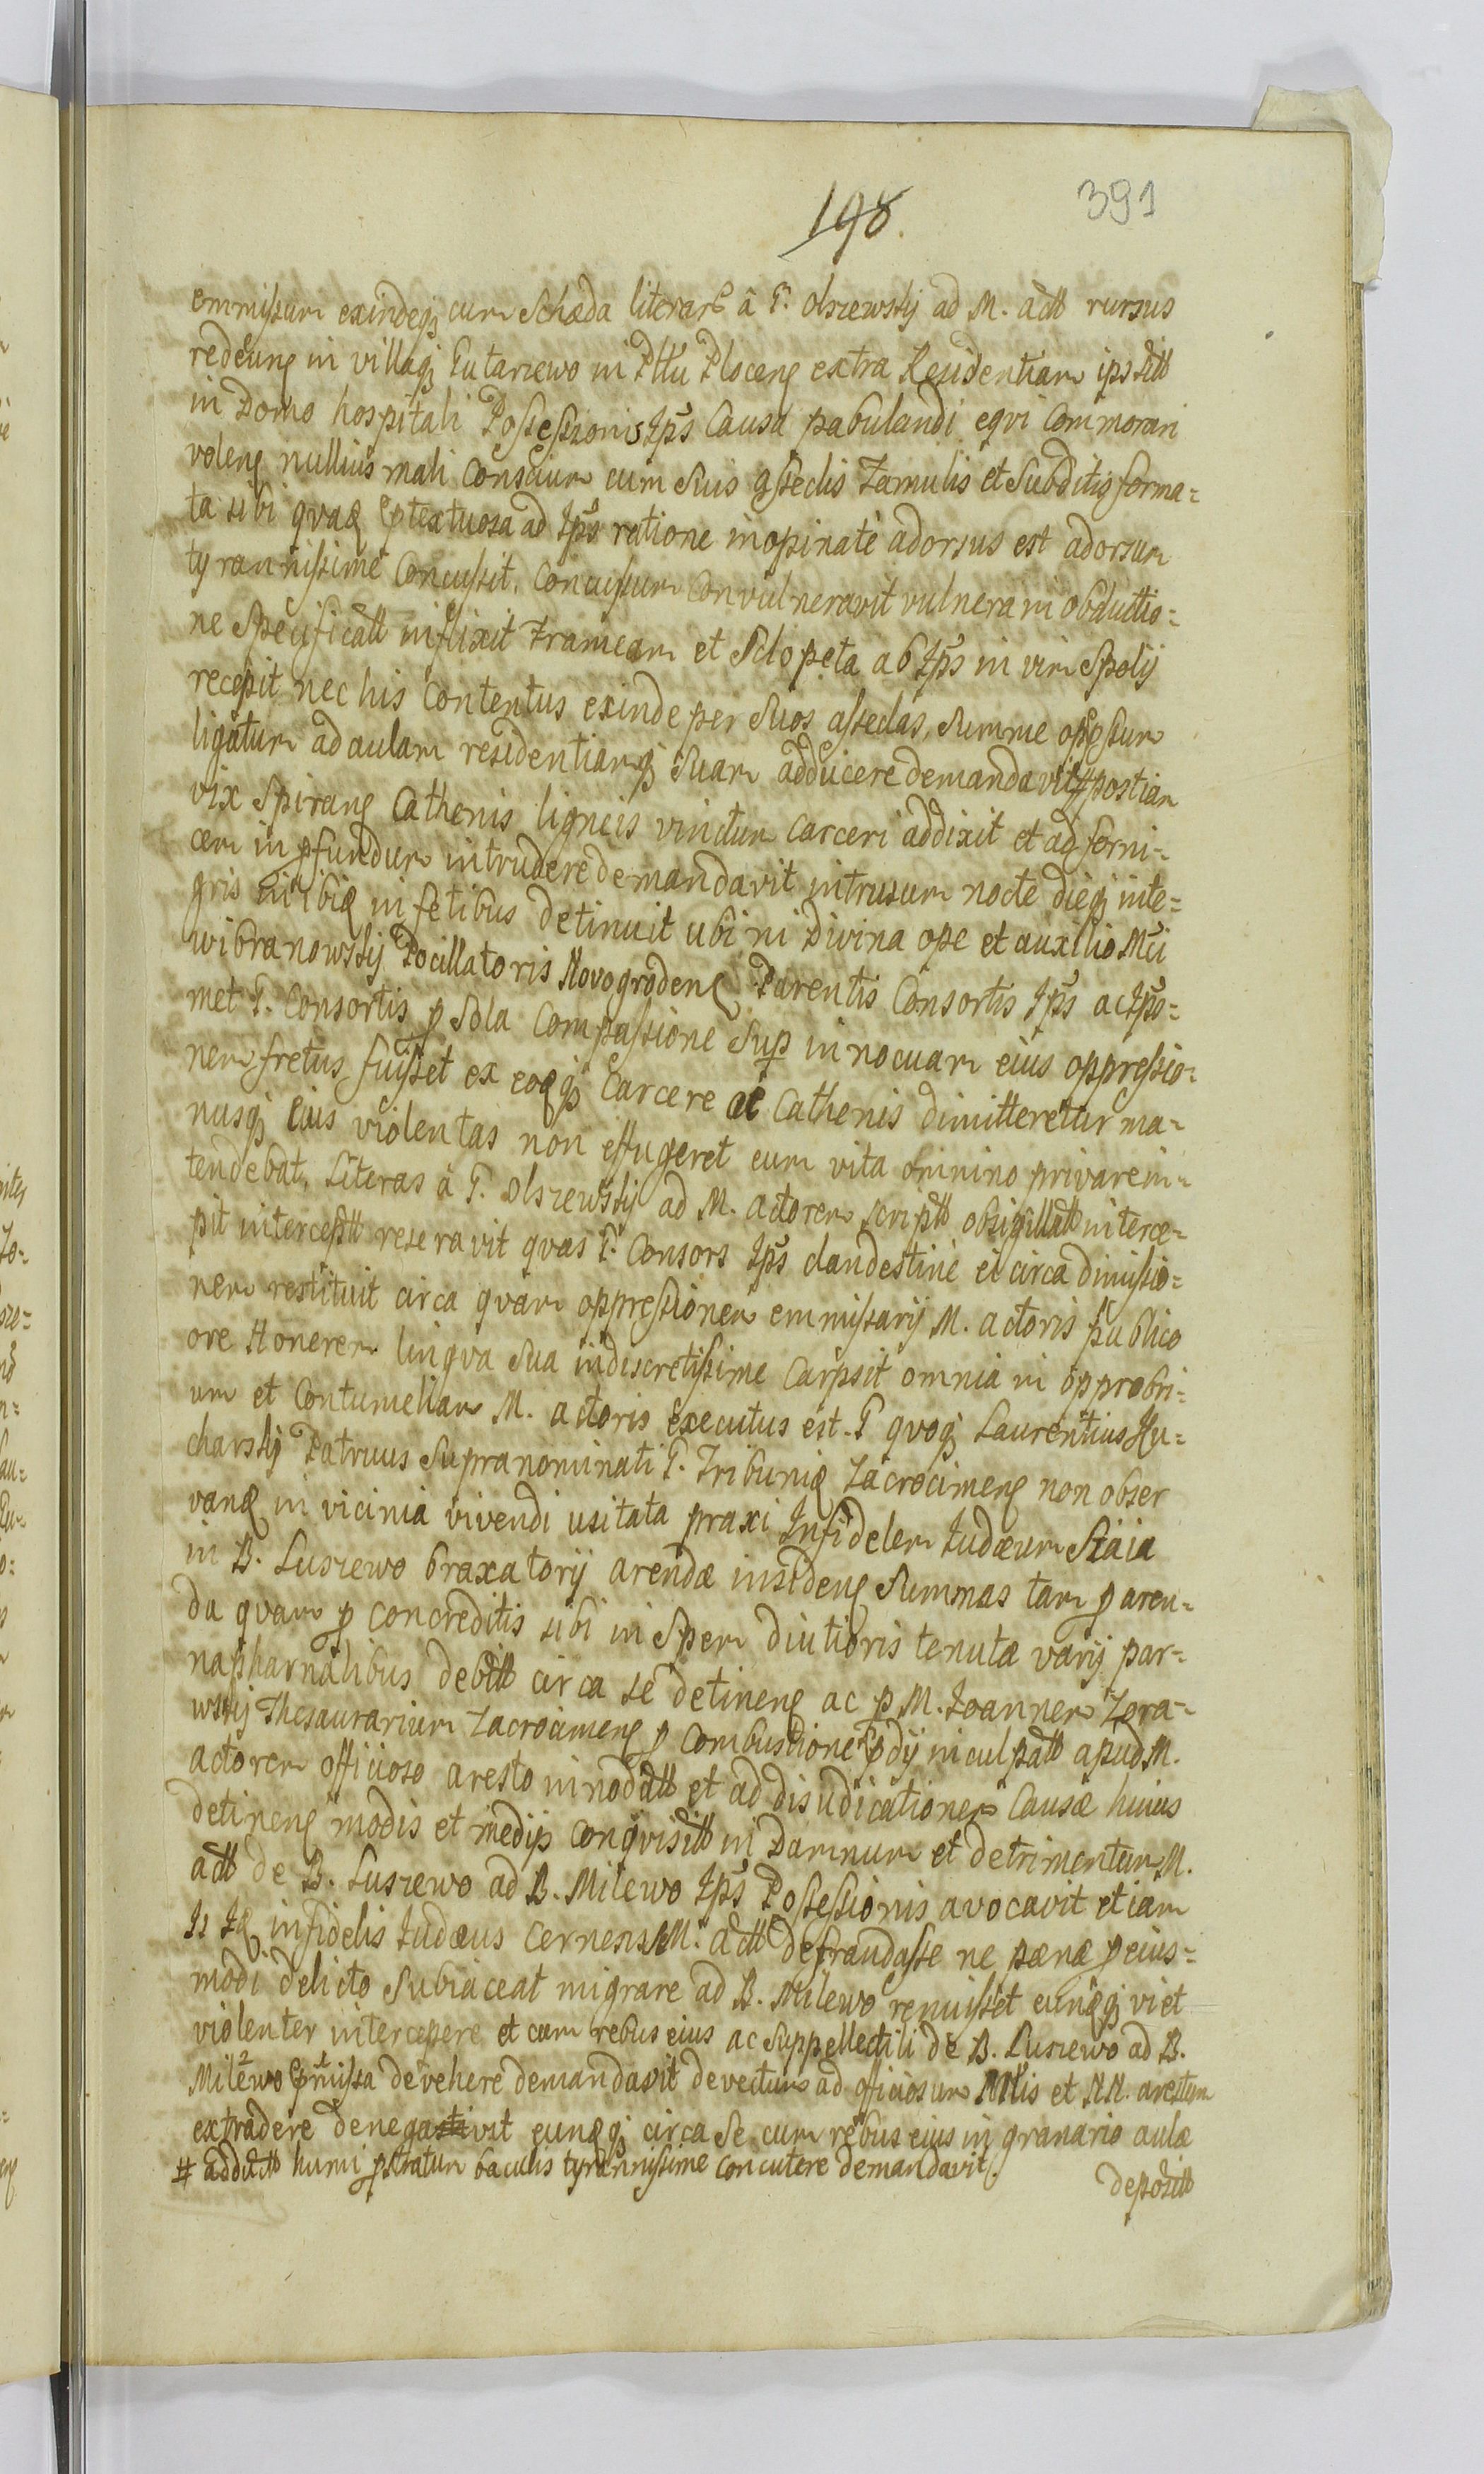 391
198.
emmissum exindeqꝫ cum Scheda literarũ â G. Olszewskij ad M. actt rursus
redeunꝭ in villaqꝫ Gutarzewo in Dttu Plocenꝭ extra Residentiam ips sitt
in Domo hospitali Possessionis Ips̃ Causa pabulandi eqvi Commorari
volenꝭ nullius mali Conscium cum Suis asseclis Famulis et Subditis forma=
ta sibi qvaꝫ p̃textuosa ad Ips̃ ratione inopinatè adorsus est adorsum
tyrannissimè Concussit, Concussum Convulneravit vulnera in obductio=
ne Specificatt inflixit Frameam et Sclopeta ab Ips̃ in vim Spolij
recepit nec his Contentus exinde per Suos asseclas, Summe opp̃ssum
ligatum ad aulam residentiamqꝫ Suam adducere demandavit # postiam
vix Spiranꝭ Cathenis ligneis vinctum Carceri addixit et ad forni=
cem in ꝓfundum intrudere demandavit intrusum nocte dieqꝫ inte=
gris inibiꝫ in fetibus detinuit ubi ni Divina ope et auxilio Mci
Wibranowskij Pocillatoris Novogrodenꝭ Parentis Consortis Ips̃ ac Ips̃o=
met G. Consortis ꝓ Sola Compassione Suꝑ innocuam eius oppressio=
nem fretus fuisset ex eoqꝫ Carcere et Cathenis dimitteretur ma=
nusqꝫ Eius violentas non effugeret eum vita omnino privare in=
tendebat, Literas à G. Olszewskij ad M. actorem scriptt obsigillatt interce=
pit interceptt reseravit qvas G. Consors Ips̃ clandestinè ei circa dimissio=
nem restituit circa qvam oppressionem emmissarij M. actoris publico
ore Honorem lingva Sua indiscretissime Carpsit omnia in opprobri=
um et Contumeliam M. actoris executus est. G qvoqꝫ Laurentius Hu=
charskij Patruus Supranominati G. Tribuniꝫ Zacrocimenꝭ non obser
vanꝭ in vicinia vivendi usitata praxi Infidelem Iudæum Szaia
in B. Luszewo braxatorij arendæ insidenꝭ Summas tam ꝓ aren=
da qvam ꝓ concreditis sibi in Spem diutioris tenutæ varijs par=
napharnalibus debitt circa se detinenꝭ ac ꝑ M. Ioannem Zora=
wskij Thesaurarium Zacrocimenꝭ ꝓ Combustione p̃dij inculpatt apud M.
actorem officioso aresto innodatt et ad disudicationem Causæ huius
detinenꝭ modis et medijs conqvisitt in Damnum et detrimentum M.
actt de B. Luszewo ad B. Milewo Ips̃ Possessionis avocavit etiam
Is Iꝫ infidelis Iudæus Cernens M. actt defraudasse ne pœnæ ꝓ eius=
modi delicto Subiaceat migrare ad B. Milewo renuisset eunqꝫ vi et
violenter intercepere et cum rebus eius ac Suppellectili de B. Luszewo ad B.
Milewo p̃missa devehere demandavit devectum ad officiosum Mttis et NN. arestum
extradere denegavit eunqꝫ circa Se cum rebus eius in granario aulæ
# adductt humi ꝓstratum baculis tyrannissime concutere demandavit.
depositt